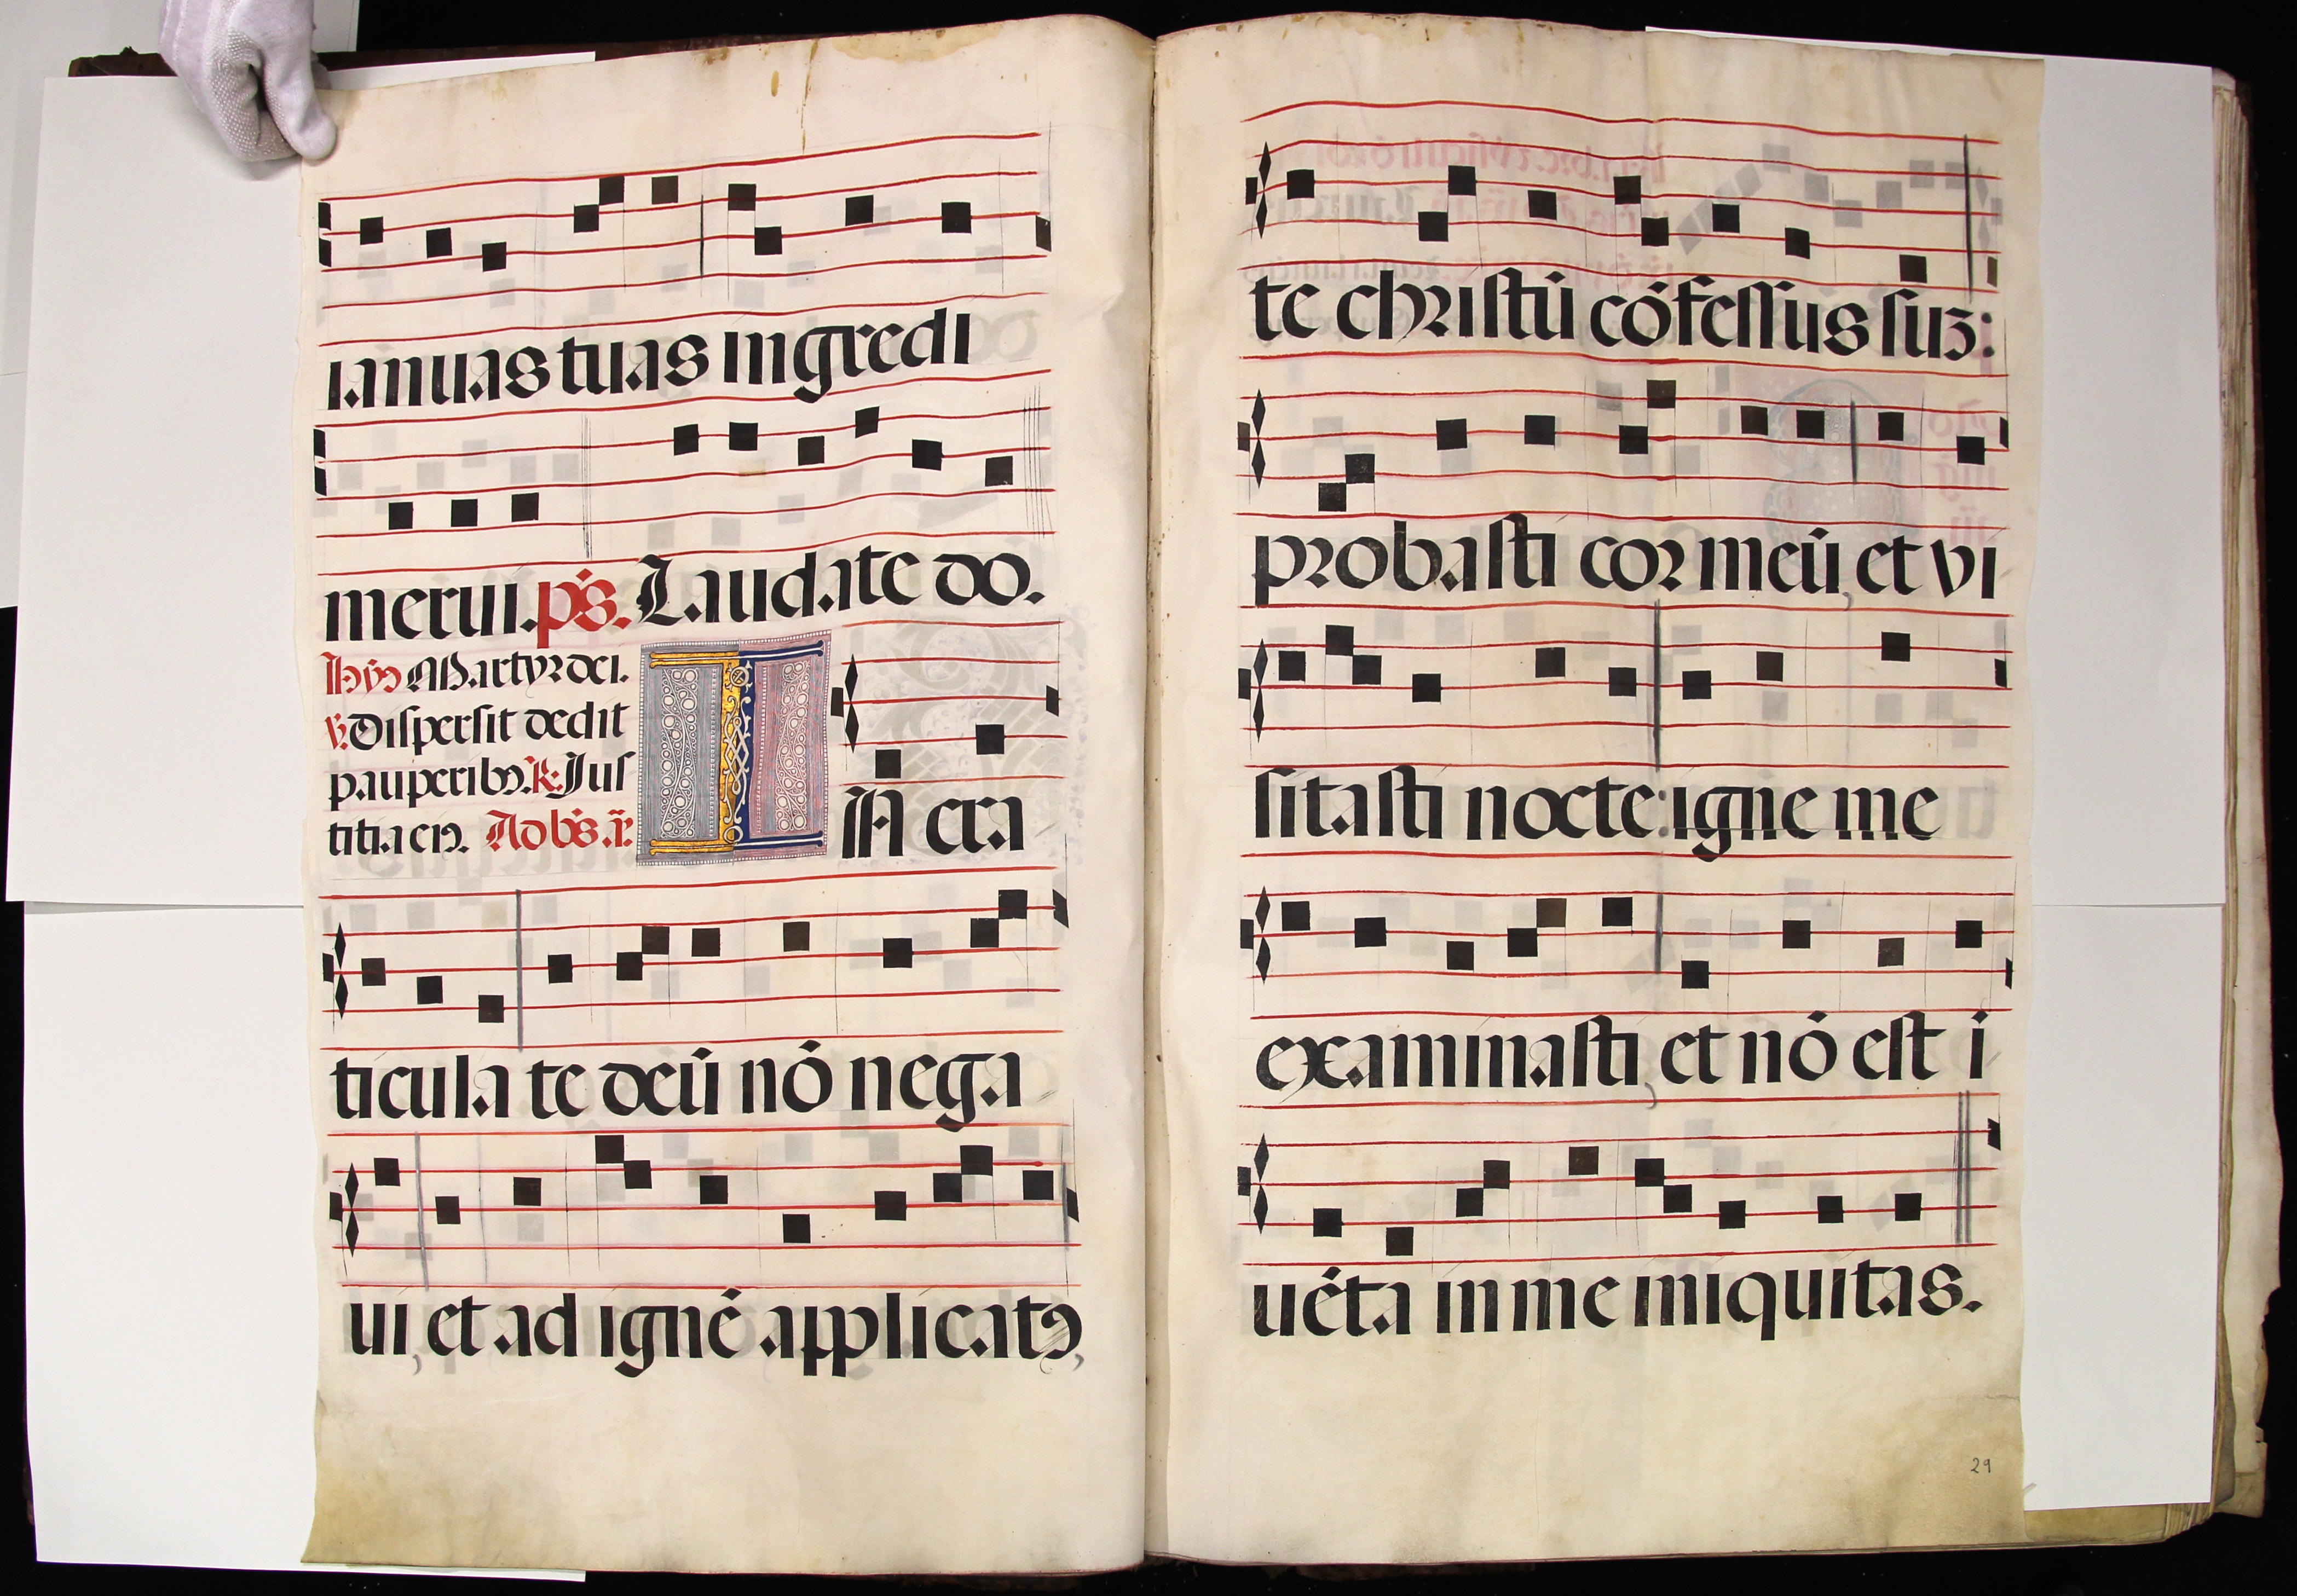 ianuas tuas ingredi
merui. p̄s. Laudate do.
Hỹꝰ Martyr dei.
℣. Dispersit dedit
pauperibꝰ. ℟. Jus
titia eiꝰ. Ad bn̄s. an̄.
IN cra
ticula te deū nō nega
ui, et ad ignē applicatꝰ,
te christū cōfessus suꝫ:
probasti cor meū, et vi
sitasti nocte: igne me
examinasti, et nō est ī
uēta in me iniquitas.
29